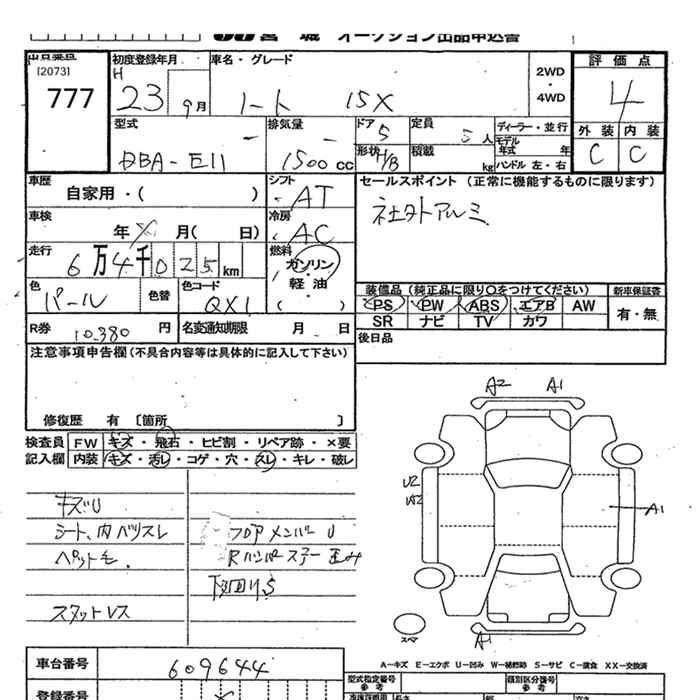 宮 城 オークション出品申込書
出品番号 初度登録年月 車名・グレード 評価点
[2073] H 2WD
777 23 9月 ノート 15X ・ 4
4WD
型式 排気量 ドア 5 定員 5人 ディーラー・並行 外装 内装
DBA-E11 1500 CC 形状 H/B 積載 kg モデル年式 年 C C
ハンドル 左・右
車歴 シフト セールスポイント (正常に機能するものに限ります)
自家用・( ) AT 社外アルミ
車検 冷房
年 月( 日) AC
走行 燃料
6万4千025km ガソリン
色 色替 色コード 軽油 装備品 (純正品に限り○をつけてください) 新車保証書
パール QX1 ( ) PS PW ABS エアB AW 有・無
R券 10,380円 名変通知期限 月 日 SR ナビ TV カワ
注意事項申告欄(不具合内容等は具体的に記入して下さい) 後日品
修復歴 有 〔箇所 〕
検査員 FW キズ・飛石・ヒビ割・リペア跡・×要
記入欄 内装 キズ・汚レ・コゲ・穴・スレ・キレ・破レ
A2 A1
キズU
シート、内バリスレ フロアメンバーU
ペット毛. Rバンパーステー歪み
下回りS
スタットレス
U2
A1
スペア A1
A-キズ E-エクボ U-凹み W-補修跡 S-サビ C-腐食 XX-交換済
車台番号 609644 型式指定番号 参考 類別区分番号 参考
登録番号